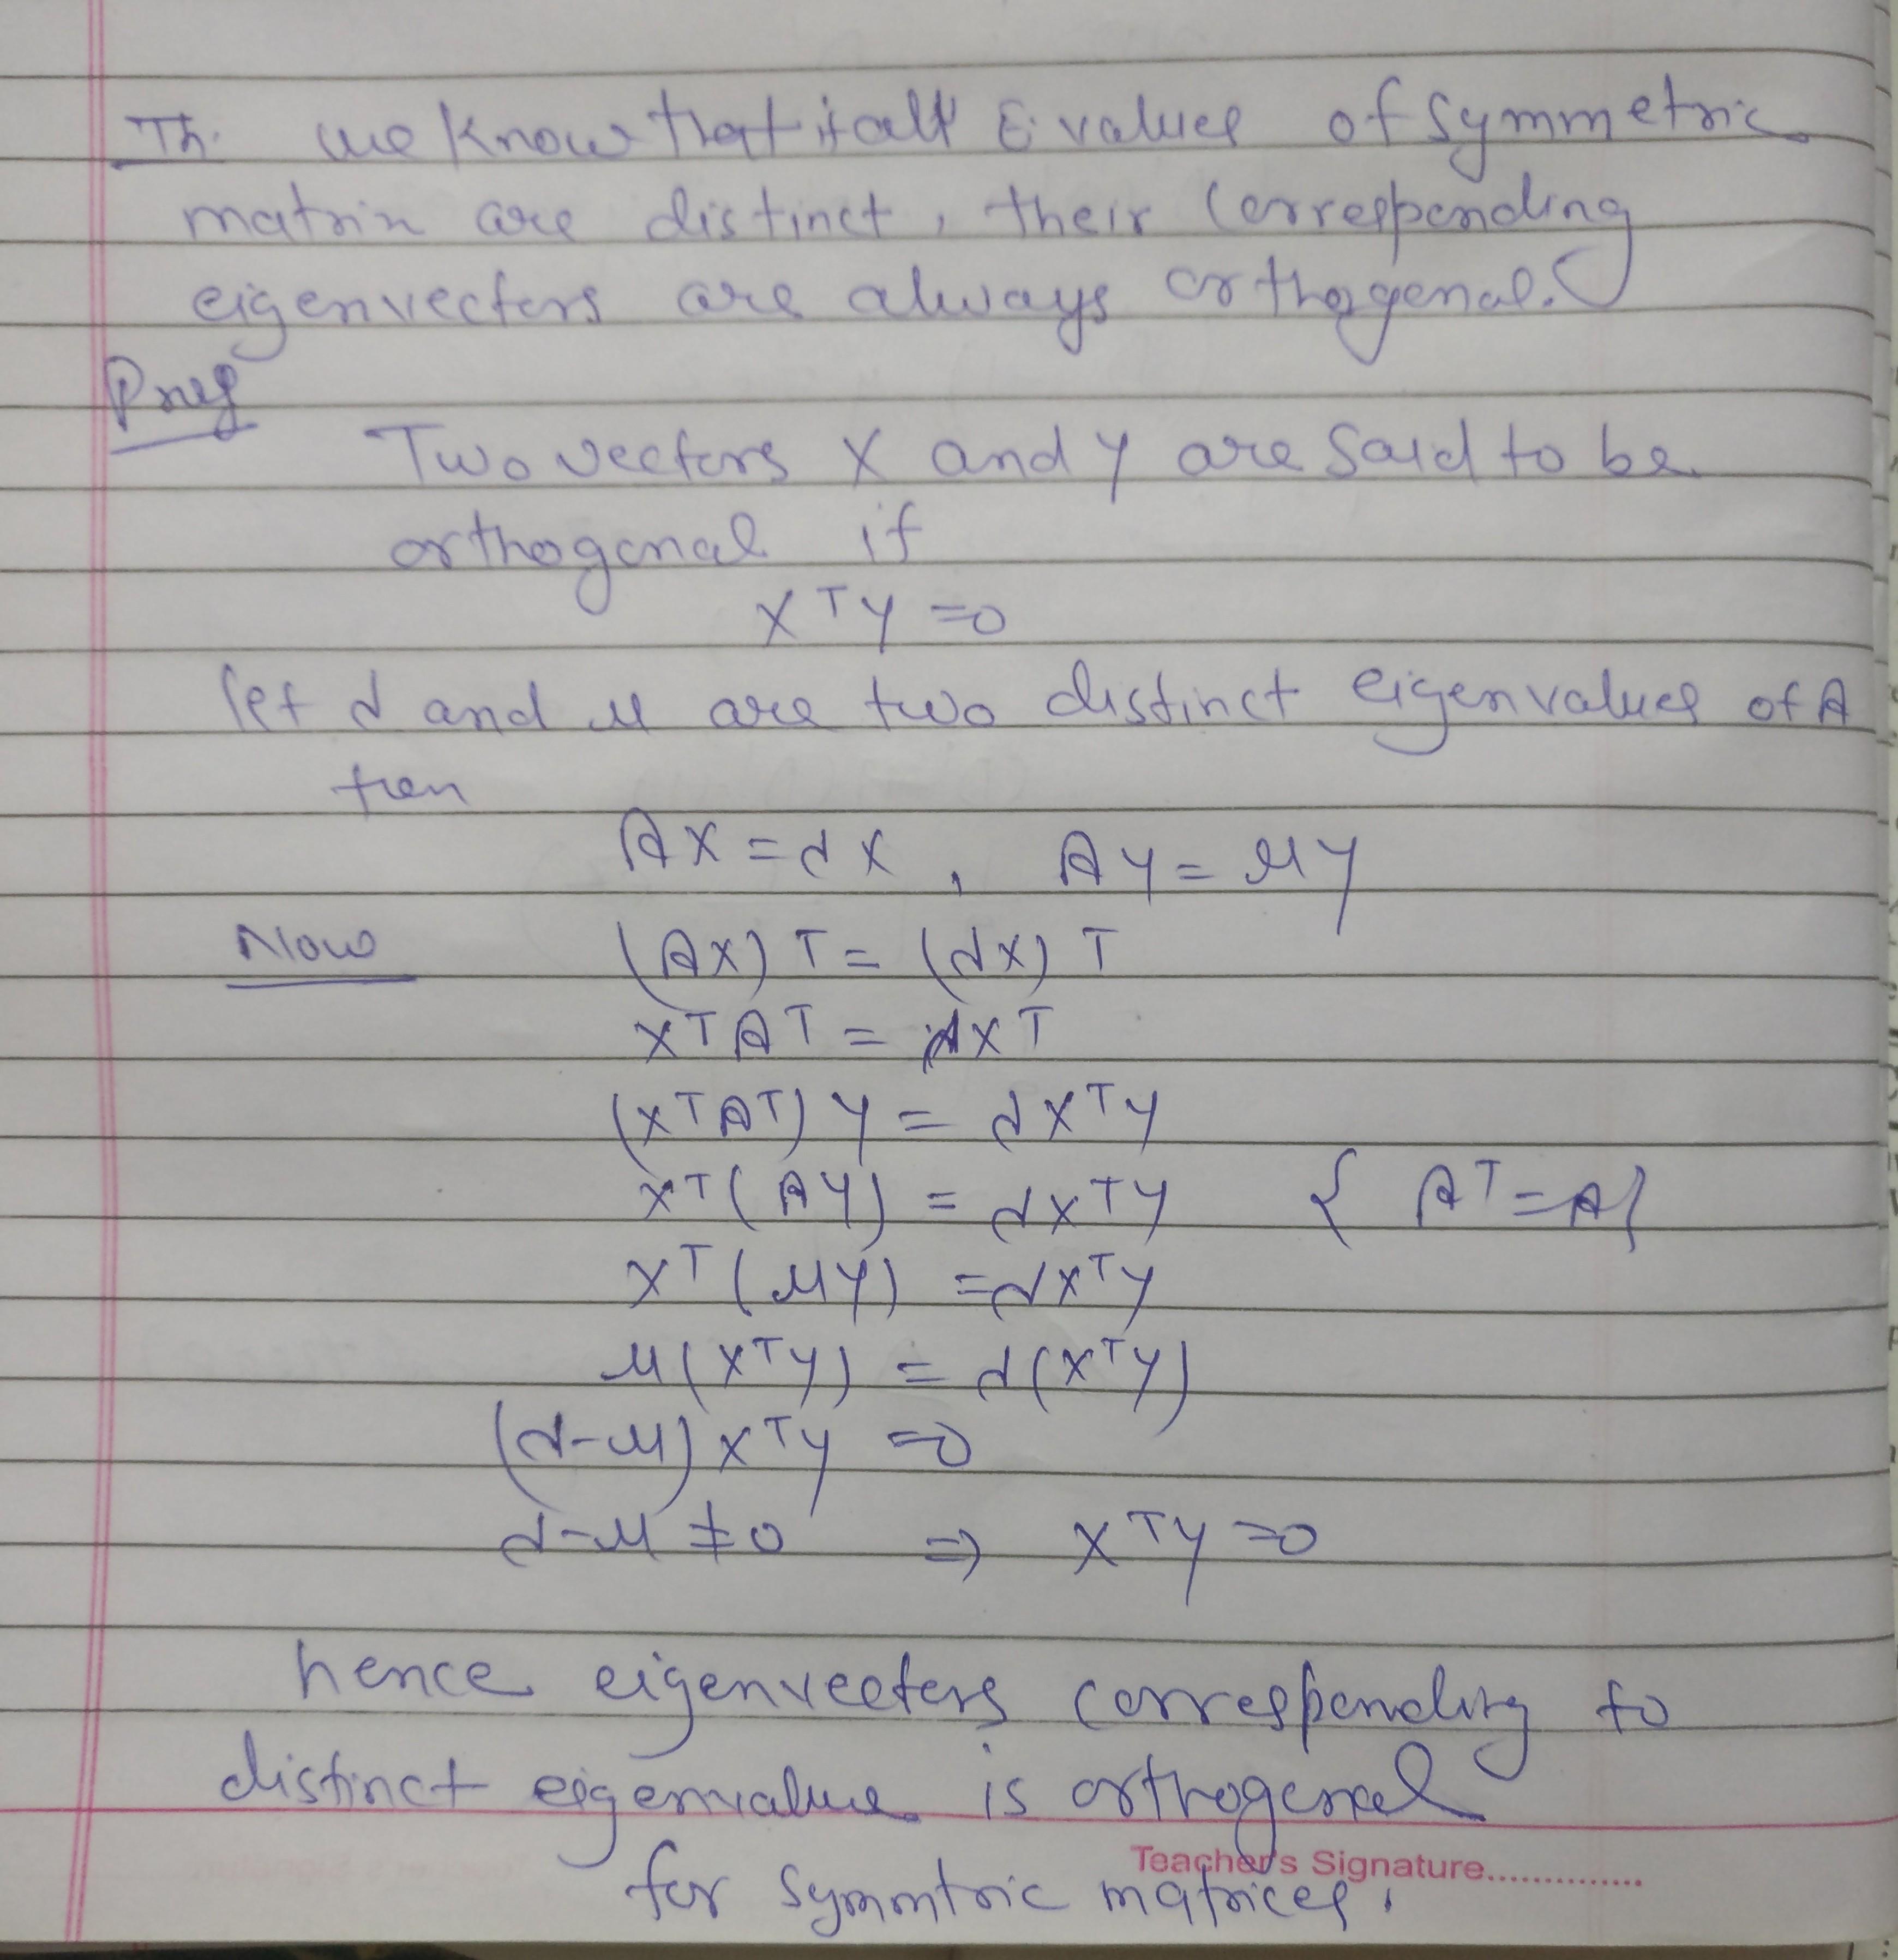 Th. we know that if all E. values of symmetric
matrix are distinct, their corresponding
eigenvectors are always orthogonal.
Proof
Two vectors X and Y are said to be
orthogonal if
X^T Y = 0
let λ and μ are two distinct eigenvalues of A
then
AX = λX , AY = μY
Now (AX)^T = (λX)^T
X^T A^T = λX^T
(X^T A^T) Y = λX^T Y
X^T (AY) = λX^T Y { A^T = A }
X^T (μY) = λX^T Y
μ(X^T Y) = λ(X^T Y)
(λ-μ) X^T Y = 0
λ-μ ≠ 0 ⇒ X^T Y = 0
hence eigenvectors corresponding to
distinct eigenvalue is orthogonal
Teacher's Signature..............
for symmtric matrices.